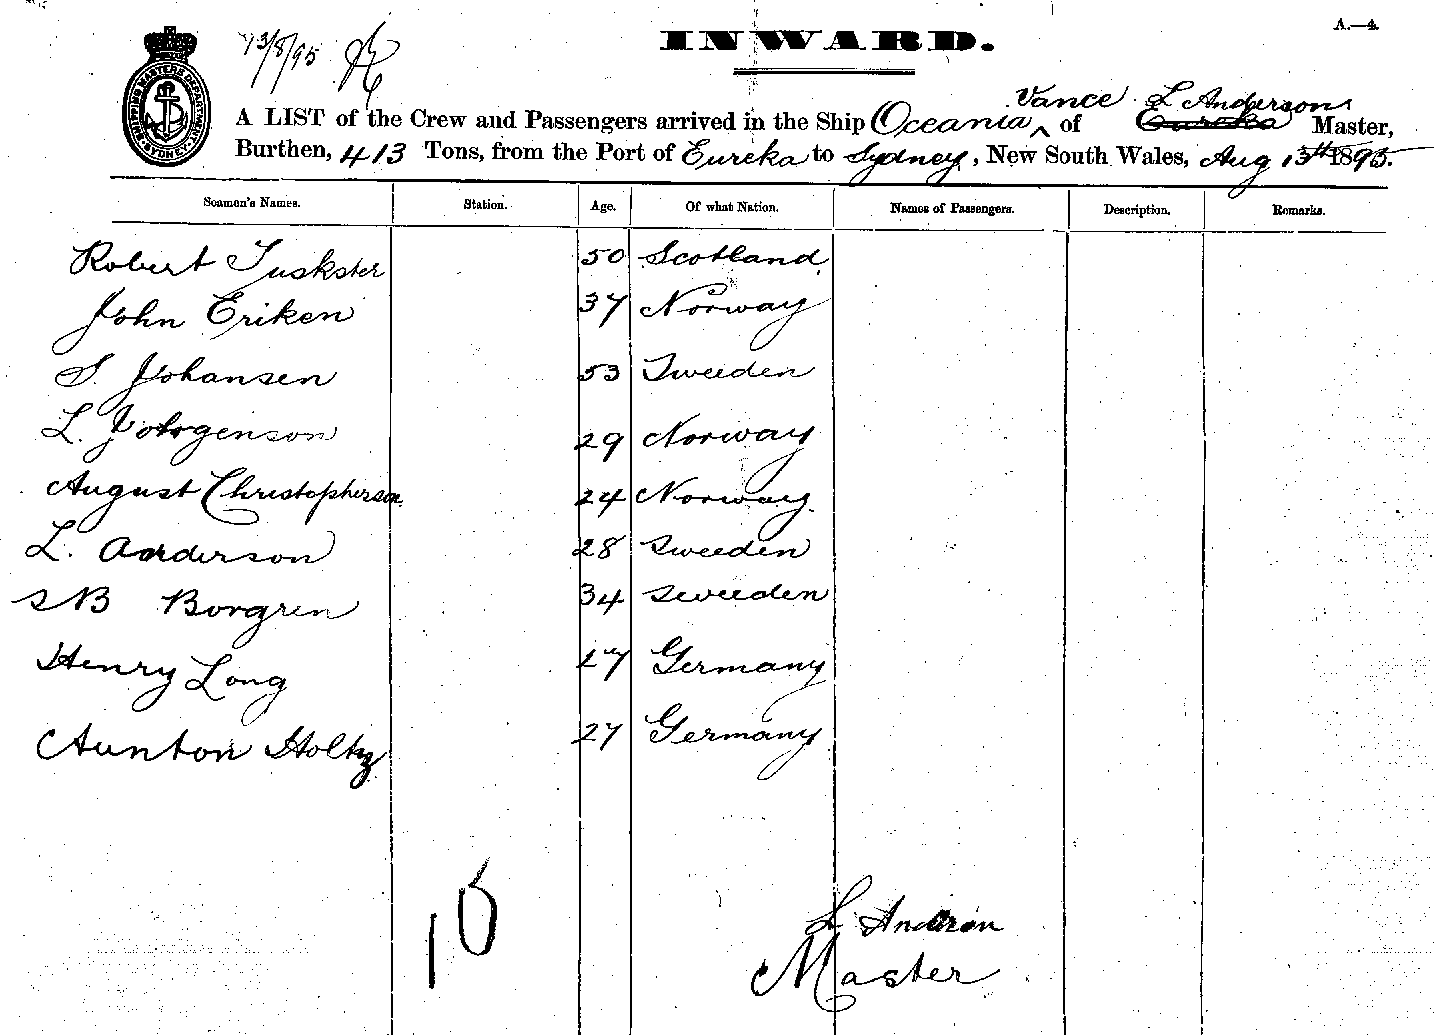 A.—4.
13/8/95
INWARD.
SHIPPING MASTERS DEPARTMENT SYDNEY
Vance L Anderson
A LIST of the Crew and Passengers arrived in the Ship Oceania ‸ of Eureka Master,
Burthen, 413 Tons, from the Port of Eureka to Sydney, New South Wales, Aug 13th 1895.
Seamen's Names. Station. Age. Of what Nation. Names of Passengers. Description. Remarks.
Robert Tuskster 50 Scotland
John Eriken 37 Norway
S. Johansen 53 Sweeden
L. Jorgenson 29 Norway
August Christopherson 24 Norway
L. Anderson 28 Sweeden
S B Borgren 34 Sweeden
Henry Long 17 Germany
Aunton Holtz 27 Germany
10
L Anderson
Master